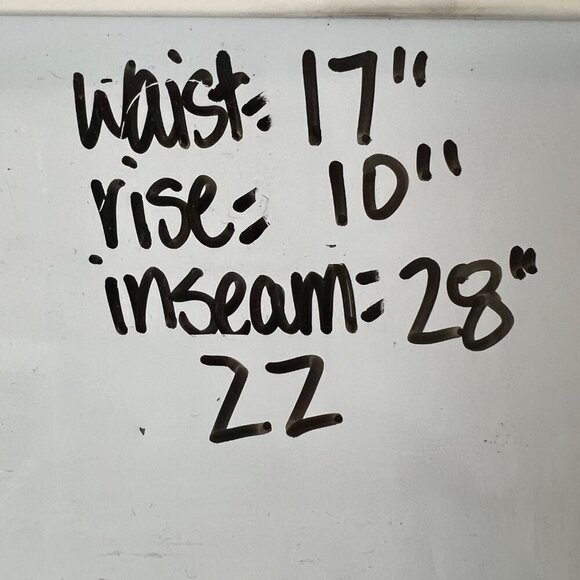 waist= 17"
rise= 10"
inseam= 28"
22